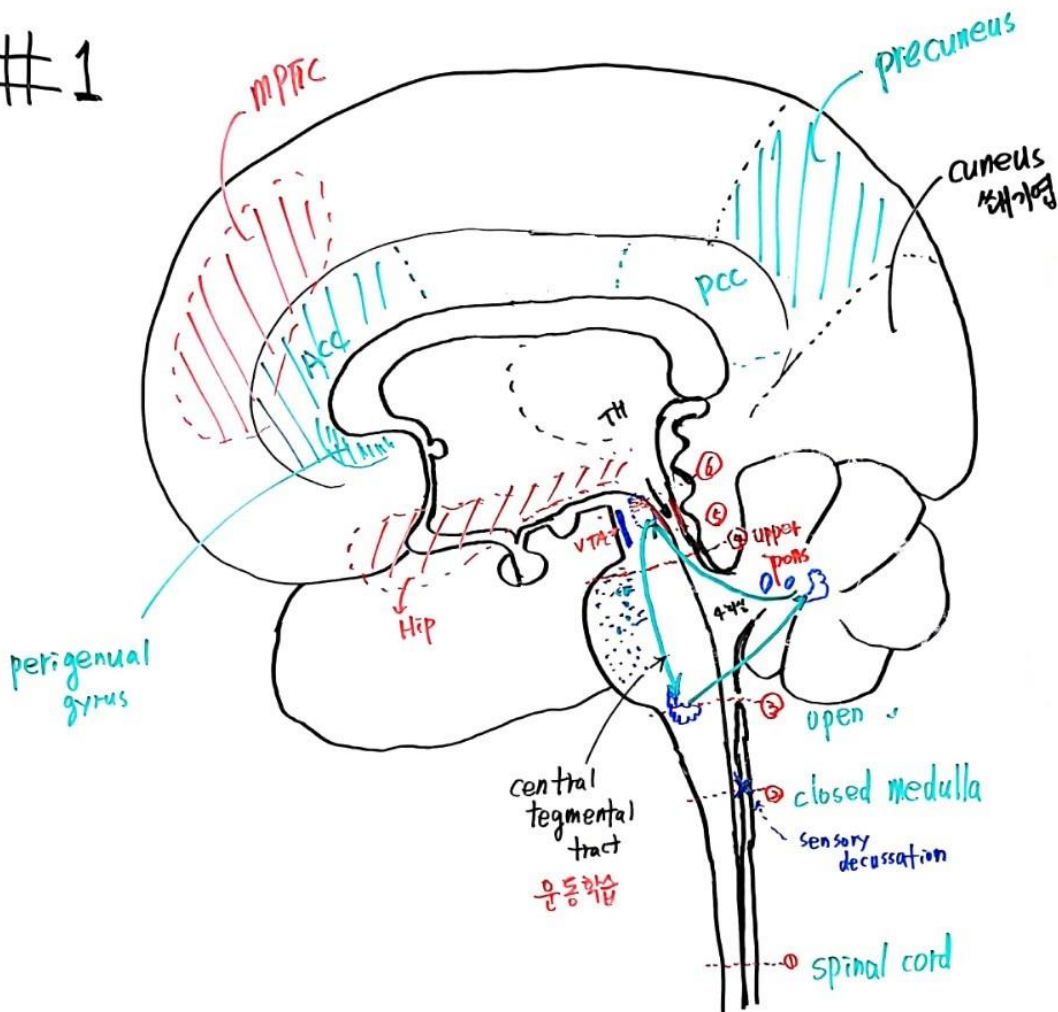 # 1
mPFC
precuneus
cuneus
쐐기엽
ACC
PCC
TH
⑥
⑤
④ upper
pons
VTA
Hip
4뇌실
perigenual
gyrus
③
open
central
tegmental
tract
운동학습
② closed medulla
sensory
decussation
① spinal cord